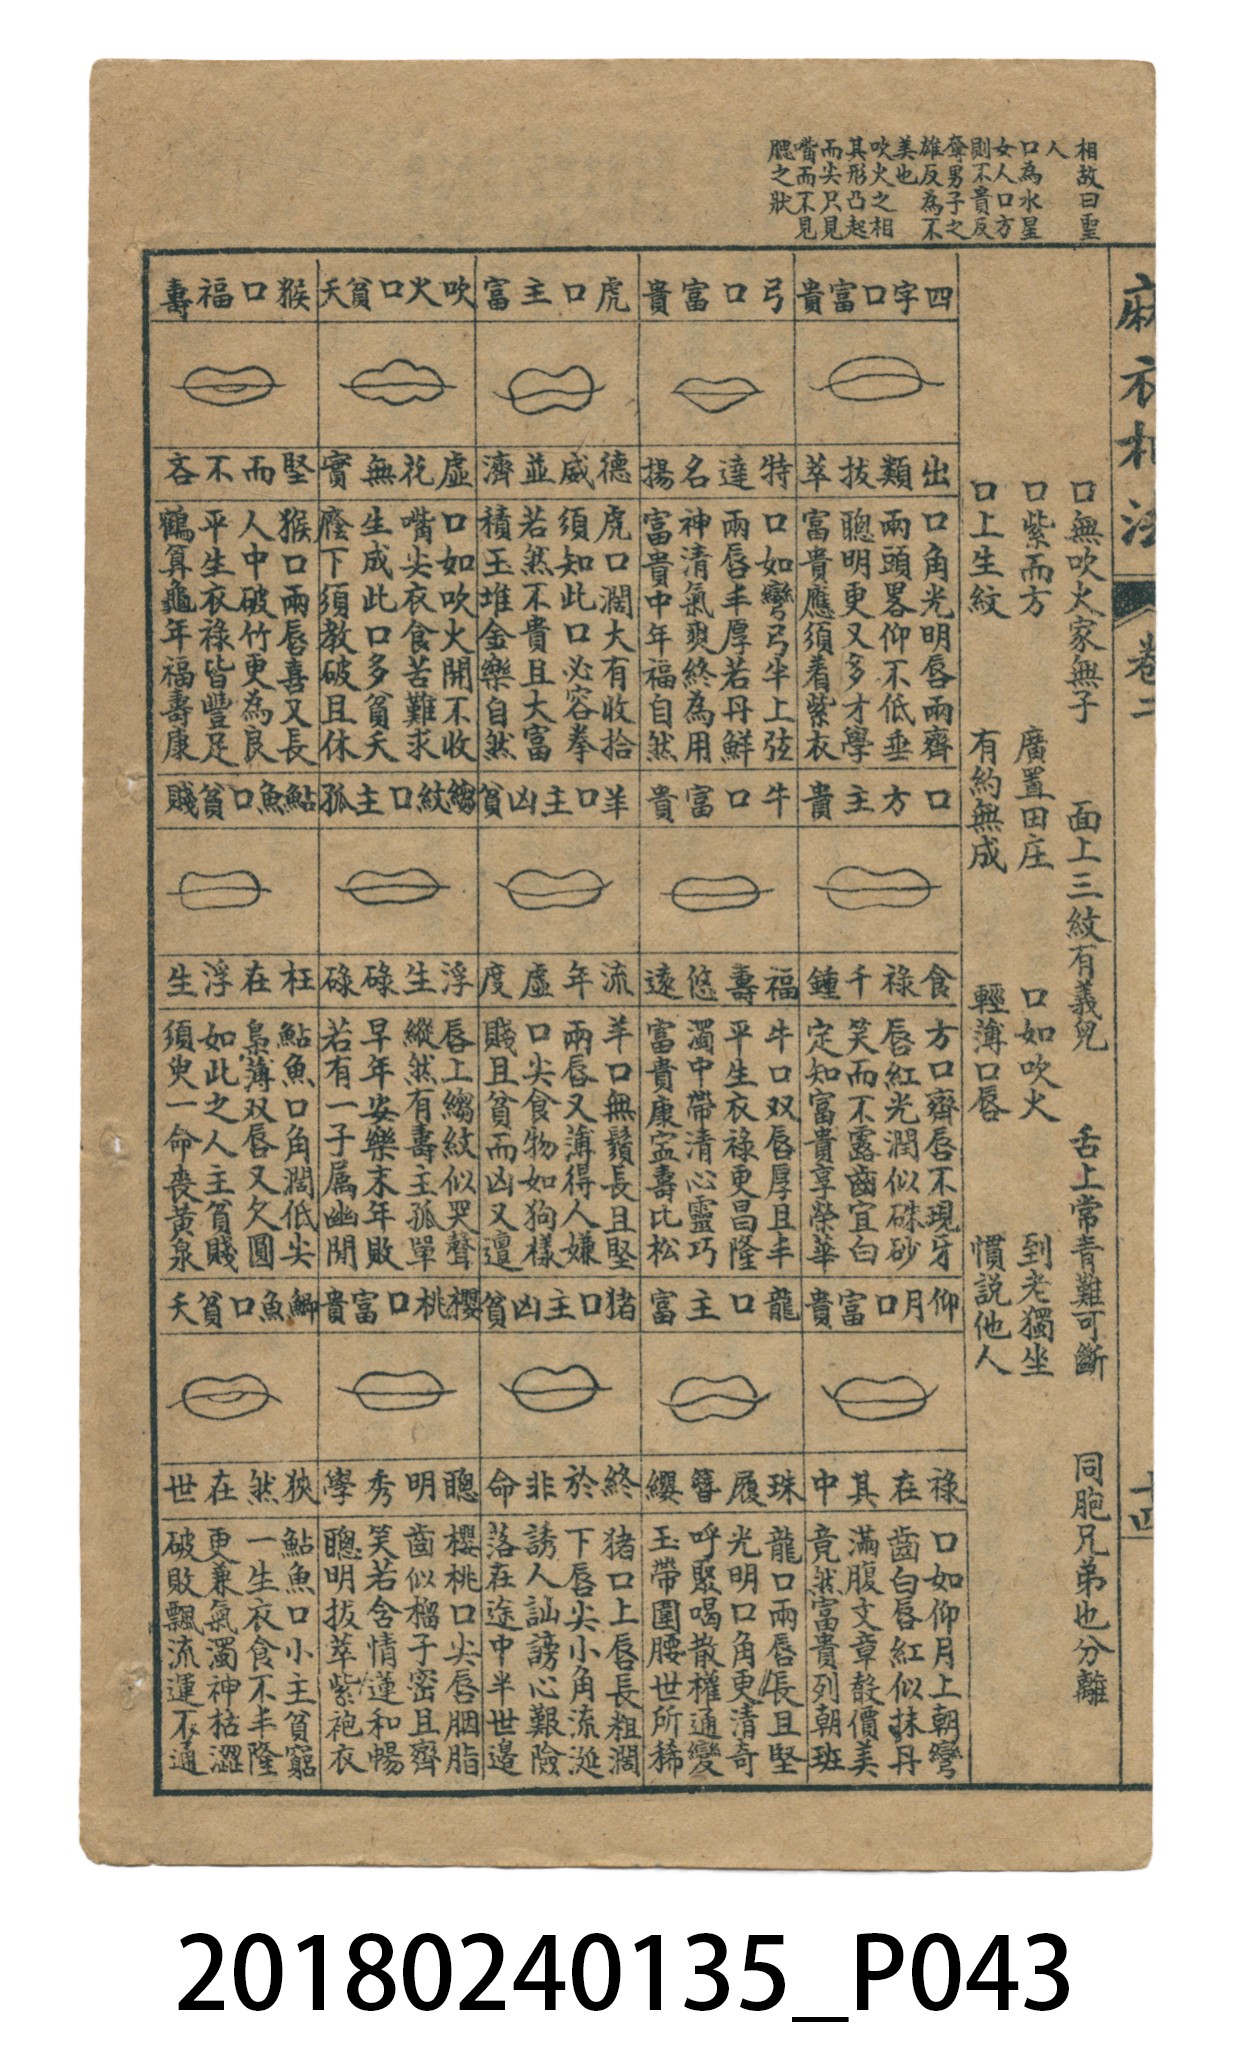 相故曰聖
人
口為水星
女人口方
則不貴反
奪男子之
雄反為不
美也
吹火之相
其形凸起
而尖只見
嘴而不見
腮之狀
麻衣相法
卷二
十四
口無吹火家無子 面上三紋有義兒 舌上常青難可斷 同胞兄弟也分離
口紫而方 廣置田庄 口如吹火 到老獨坐
口上生紋 有約無成 輕薄口唇 慣説他人
四字口富貴
出類拔萃
口角光明唇兩齊
兩頭畧仰不低垂
聰明更又多才學
富貴應須着紫衣
弓口富貴
特達名揚
口如彎弓半上弦
兩唇丰厚若丹鮮
神清氣爽終為用
富貴中年福自然
虎口主富
德威並濟
虎口濶大有收拾
須知此口必容拳
若然不貴且大富
積玉堆金樂自然
吹火口貧夭
虛花無實
口如吹火開不收
嘴尖衣食苦難求
生成此口多貧夭
廕下須教破且休
猴口福壽
堅而不吝
猴口兩唇喜又長
人中破竹更為良
平生衣祿皆豐足
鶴算龜年福壽康
口方主貴
食祿千鍾
方口齊唇不現牙
唇紅光潤似硃砂
笑而不露齒宜白
定知富貴享榮華
牛口富貴
福壽悠遠
牛口双唇厚且丰
平生衣祿更昌隆
濁中帶清心靈巧
富貴康寍壽比松
羊口主凶貧
流年虛度
羊口無鬚長且堅
兩唇又薄得人嫌
口尖食物如狗樣
賤且貧而凶又邅
縐紋口主孤
浮生碌碌
唇上縐紋似哭聲
縱然有壽主孤單
早年安樂末年敗
若有一子属幽閒
鮎魚口貧賤
枉在浮生
鮎魚口角濶低尖
梟薄双唇又欠圓
如此之人主貧賤
須臾一命喪黃泉
仰月口富貴
祿在其中
口如仰月上朝彎
齒白唇紅似抹丹
滿腹文章聲價美
竟然富貴列朝班
龍口主富
珠履簪纓
龍口兩唇長且堅
光明口角更清奇
呼聚喝散權通變
玉帶圍腰世所稀
猪口主凶貧
終於非命
猪口上唇長粗濶
下唇尖小角流涎
誘人訕謗心艱險
落在途中半世邅
櫻桃口富貴
聰明秀學
櫻桃口尖唇胭脂
齒似榴子密且齊
笑若含情蓮和暢
聰明拔萃紫袍衣
鯽魚口貧夭
狹然在世
鮎魚口小主貧窮
一生衣食不丰隆
更兼氣濁神枯澀
破敗飄流運不通
20180240135_P043